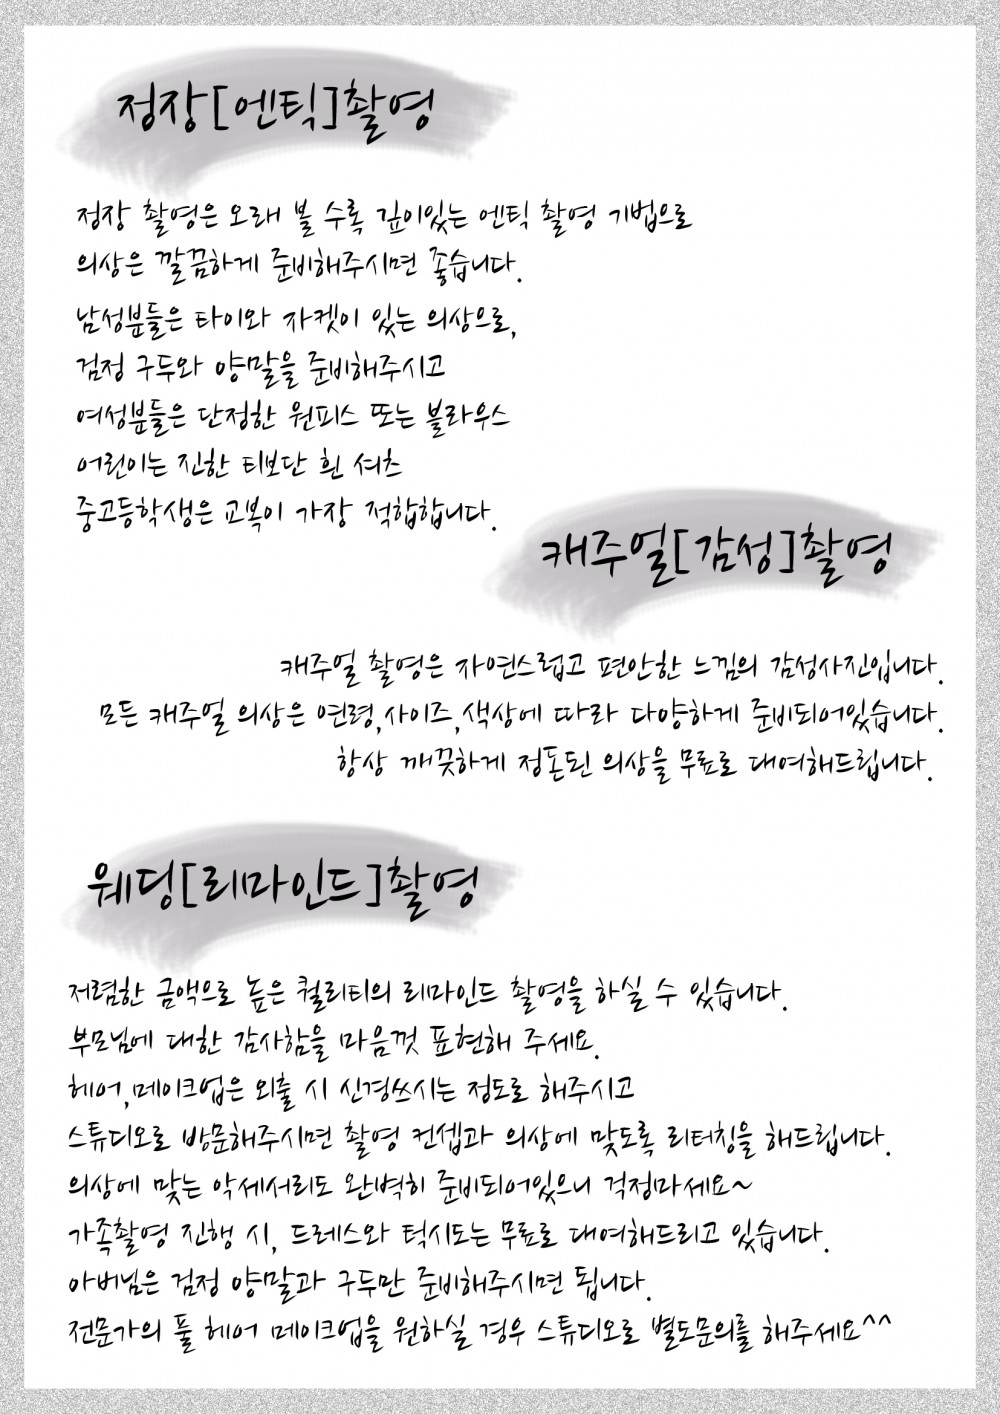 정장[엔틱]촬영
정장 촬영은 오래 볼 수록 깊이있는 엔틱 촬영 기법으로
의상은 깔끔하게 준비해주시면 좋습니다.
남성분들은 타이와 자켓이 있는 의상으로,
검정 구두와 양말을 준비해주시고
여성분들은 단정한 원피스 또는 블라우스
어린이는 진한 티보단 흰 셔츠
중고등학생은 교복이 가장 적합합니다.
캐주얼[감성]촬영
캐주얼 촬영은 자연스럽고 편안한 느낌의 감성사진입니다.
모든 캐주얼 의상은 연령,사이즈,색상에 따라 다양하게 준비되어있습니다.
항상 깨끗하게 정돈된 의상을 무료로 대여해드립니다.
웨딩[리마인드]촬영
저렴한 금액으로 높은 퀄리티의 리마인드 촬영을 하실 수 있습니다.
부모님에 대한 감사함을 마음껏 표현해 주세요.
헤어,메이크업은 외출 시 신경쓰시는 정도로 해주시고
스튜디오로 방문해주시면 촬영 컨셉과 의상에 맞도록 리터칭을 해드립니다.
의상에 맞는 악세서리도 완벽히 준비되어있으니 걱정마세요~
가족촬영 진행 시, 드레스와 턱시도는 무료로 대여해드리고 있습니다.
아버님은 검정 양말과 구두만 준비해주시면 됩니다.
전문가의 풀 헤어 메이크업을 원하실 경우 스튜디오로 별도문의를 해주세요^^